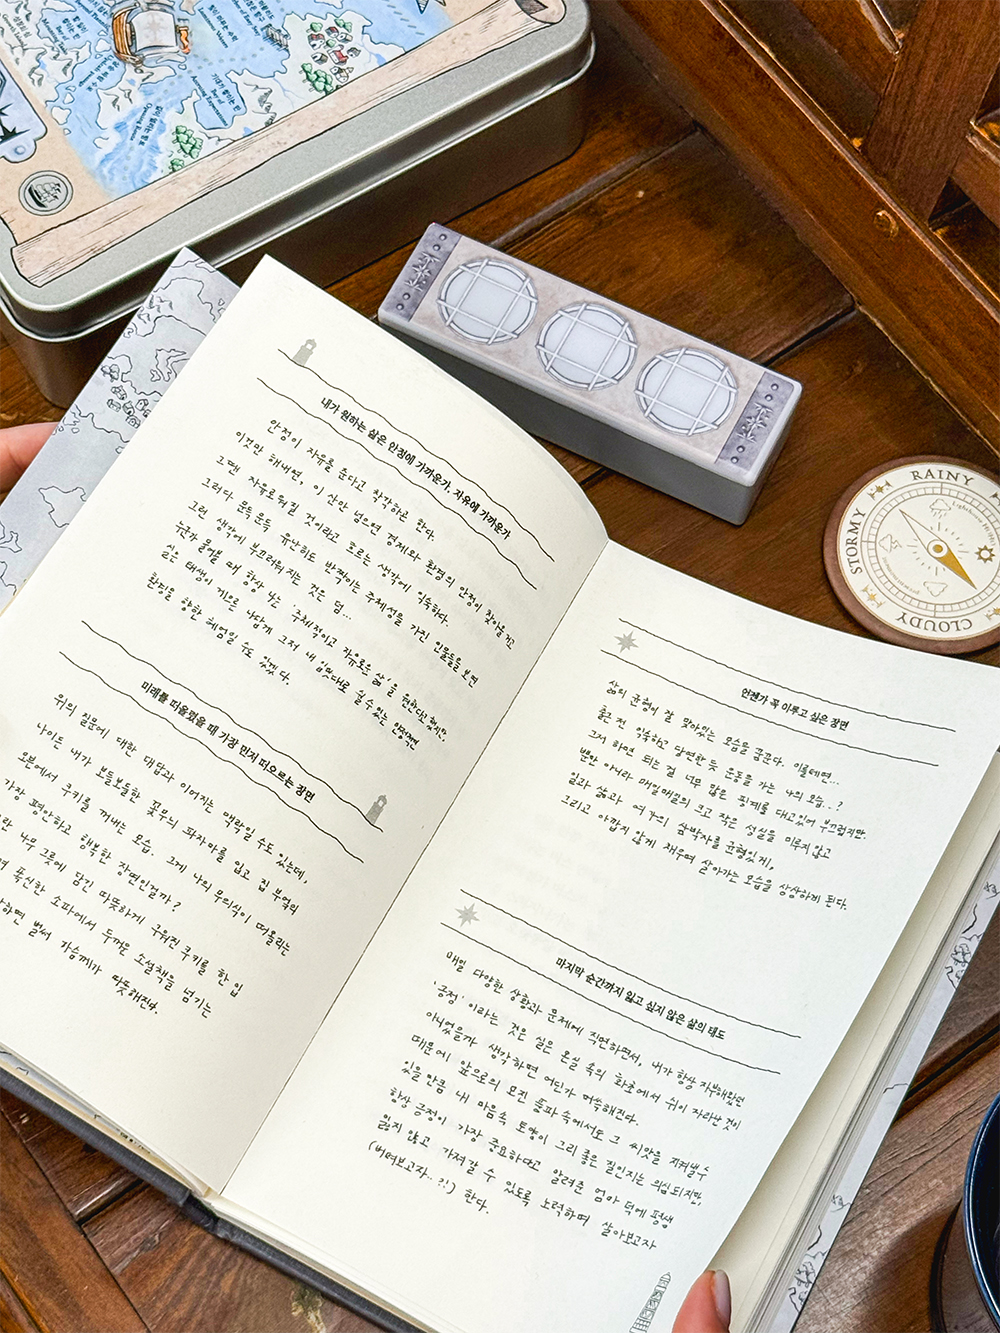 내가 원하는 삶은 안정에 가까운가, 자유에 가까운가
안정이 자유를 준다고 착각하곤 한다.
이것만 해내면, 이 산만 넘으면 경제와 환경의 안정이 찾아올 거고
그땐 자유로워질 것이라고 흐르는 생각에 익숙하다.
그러다 문득문득 유난히도 반짝이는 주체성을 가진 인물들을 보면
그런 생각에 부끄러워지는 것은 덤...
누군가 물어볼 때 항상 나는 '주체적이고 자유로운 삶'을 원한다 했지만,
실은 태생이 게으른 나답게 그저 내 입맛대로 쉴 수 있는 안정적인
환경을 향한 헤엄일 수도 있겠다.
미래를 떠올렸을 때 가장 먼저 떠오르는 장면
위의 질문에 대한 대답과 이어지는 맥락일 수도 있는데,
나이든 내가 보들보들한 꽃무늬 파자마를 입고 집 부엌의
오븐에서 쿠키를 꺼내는 모습. 그게 나의 무의식이 떠올리는
가장 평안하고 행복한 장면인걸까?
나무 그릇에 담긴 따뜻하게 구워진 쿠키를 한 입
푹신한 소파에서 두꺼운 소설책을 넘기는
하면 벌써 가슴께가 따뜻해진다.
언젠가 꼭 이루고 싶은 장면
삶의 균형이 잘 맞아있는 모습을 꿈꾼다. 이를테면...
출근 전 익숙하고 당연한 듯 운동을 가는 나의 모습..?
그저 하면 되는 걸 너무 많은 핑계를 대고있어 부끄럽지만.
뿐만 아니라 매일매일의 크고 작은 성실을 미루지 않고
일과 삶과 여가의 삼박자를 균형있게,
그리고 아깝지 않게 채우며 살아가는 모습을 상상하게 된다.
마지막 순간까지 잃고 싶지 않은 삶의 태도
매일 다양한 상황과 문제에 직면하면서, 내가 항상 자부해왔던
'긍정'이라는 것은 실은 온실 속의 화초에서 쉬이 자라난 것이
아니었을까 생각하면 어딘가 머쓱해진다.
때문에 앞으로의 모진 풍파 속에서도 그 씨앗을 지켜낼 수
있을만큼 내 마음속 토양이 그리 좋은 질인지는 의심되지만,
항상 긍정이 가장 중요하다고 알려준 엄마 덕에 평생
잃지 않고 가져갈 수 있도록 노력하며 살아보고자
(버텨보고자..?!) 한다.
STORMY
RAINY
CLOUDY